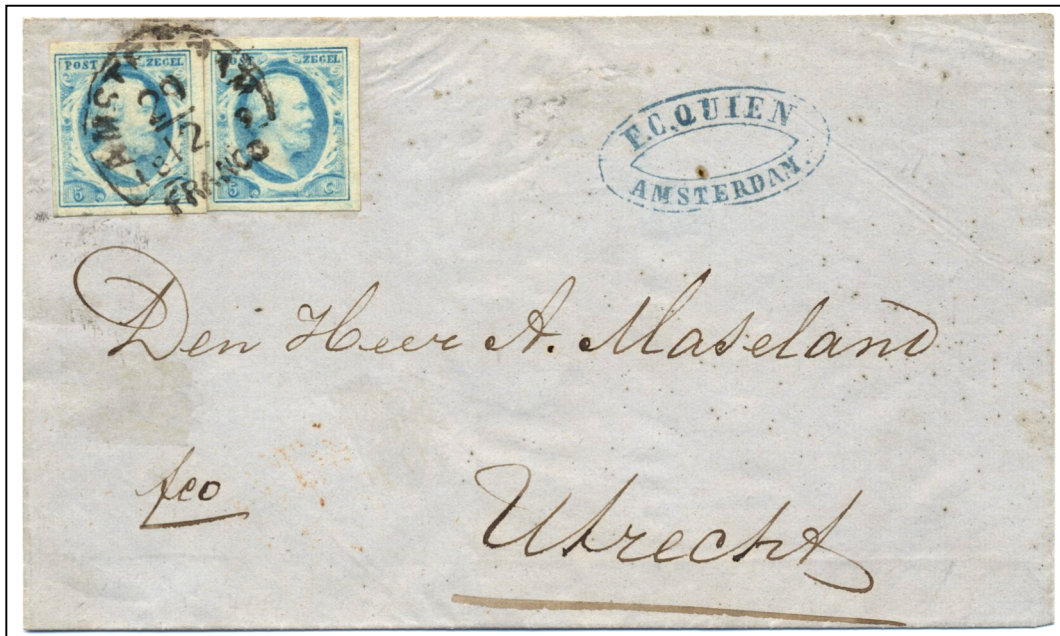 POST ZEGEL POST ZEGEL
AMSTERDAM
29
12
FRANCO
5 C. 5 C.
F.C. QUIEN
AMSTERDAM.
Den Heer A. Maseland
fco
Utrecht